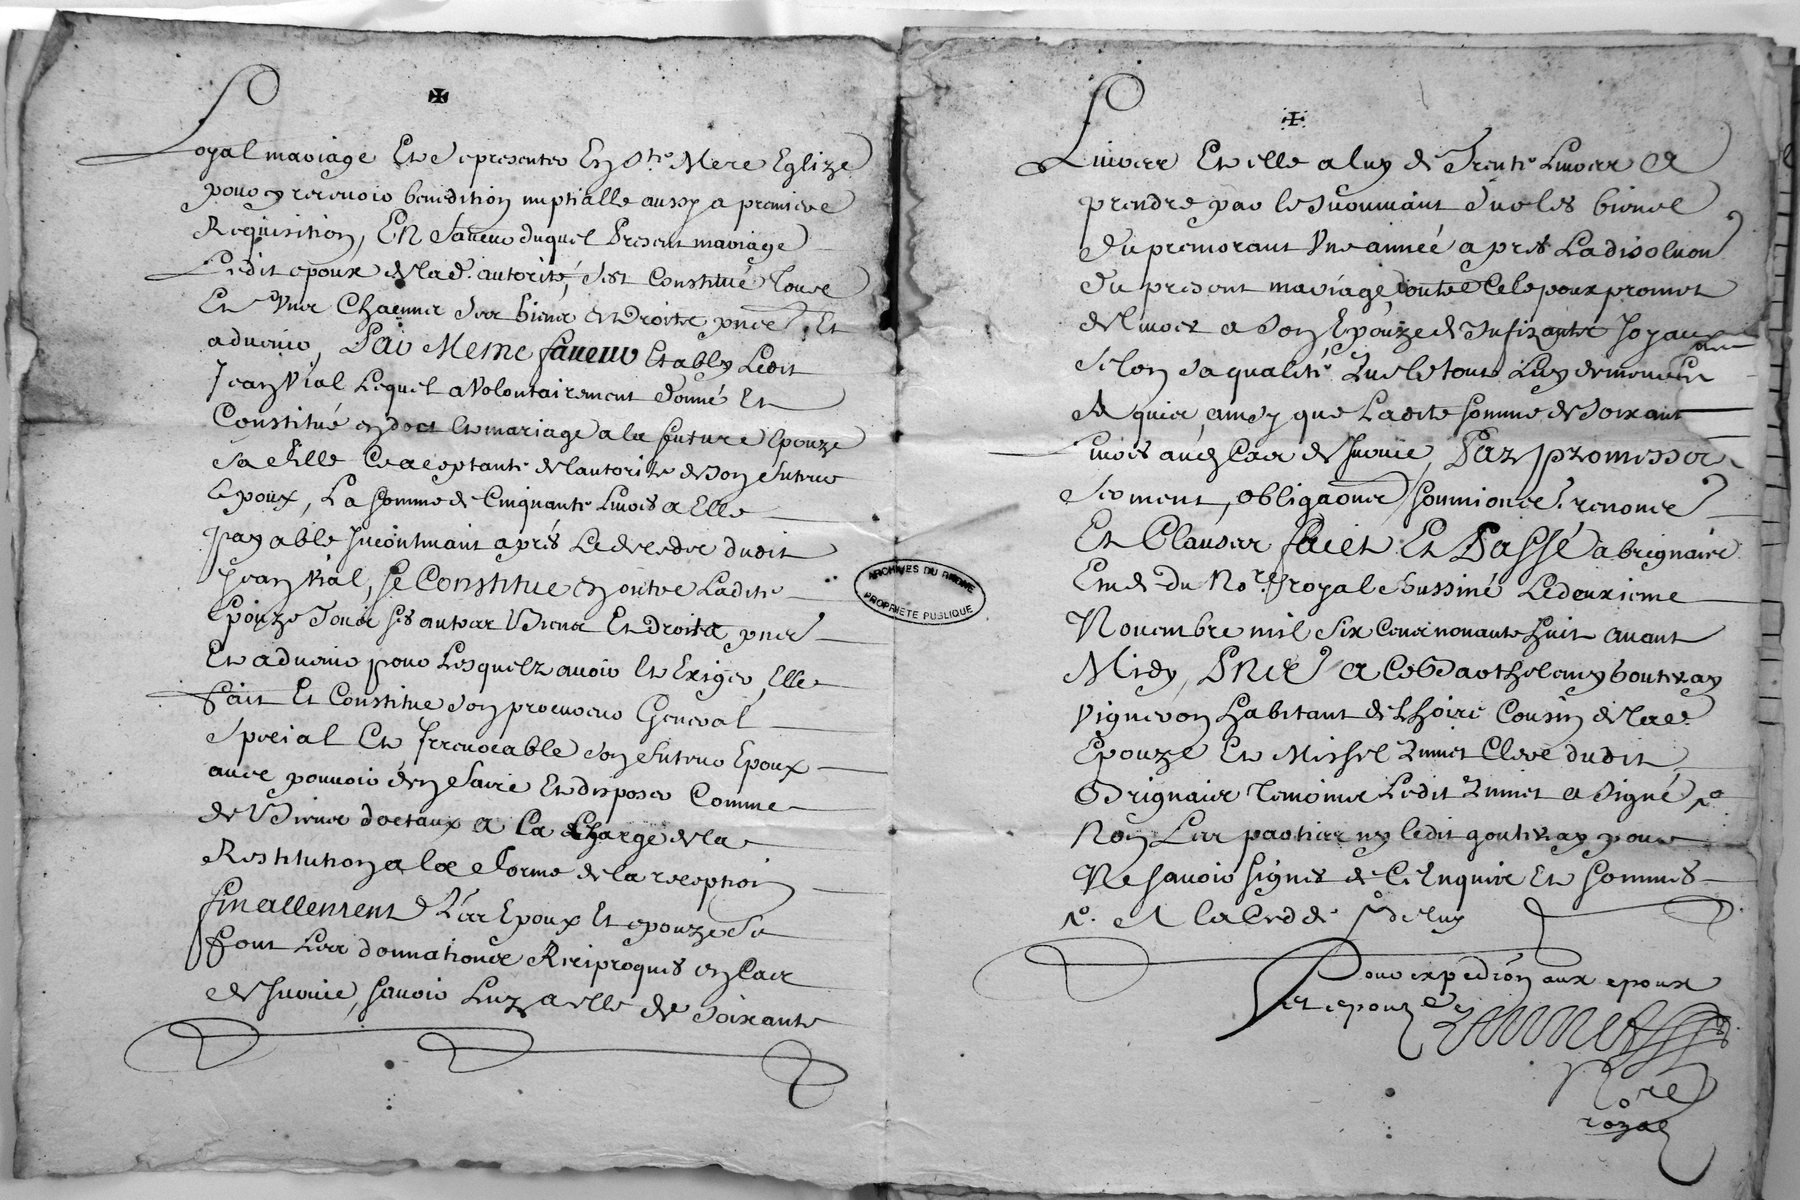 Loyal mariage Et se presenter En Ste. Mere Eglize
pour y recevoir benediction nuptialle aussy a premiere
Requisition, En faveur duquel Present mariage
Ledit epoux de lad. autorité, s'est Constitué Tous
Et Uns Chacuns ses biens et droits pnts Et
advenir, Par Meme faveur Estably Ledit
Jean Vial Lequel a Volontairement donné Et
Constitué en dot et mariage a la future Epouze
sa fille Ce aceptante de l'autorité de son futur
Epoux, La somme de Cinquante Livres a Elle
payable Incontinant aprés Le decedes dudit
Jean Vial, se Constitue en outre Ladite
Epouze Tous ses autres Biens Et droits pnts
Et advenir pour Lesquelz avoir Et Exiger, Elle
fait Et Constitue son procureur General
Special Et Irrevocable son futur Epoux
avec pouvoir d'en faire Et disposer Comme
de Biens dotaux a La Charge de la
Restitution a la forme de la reception
finallement Les Epoux Et epouze se
font Les donnations Reciproques en Cas
de survie, savoir Luy a elle de soixante
ARCHIVES DU RHONE
PROPRIETE PUBLIQUE
Livres Et elle a luy de Trente Livres A
prendre par le survivant sur les biens
du premorant Une année apres La disolution
du present mariage, outre Ce lepoux promet
de livrer a son Epouze de sufizants Joyaux
selon sa qualité Que le tout Luy demeurera
aquis, ainsy que Ladite somme de soixante
Livres audit Cas de survie, Par promesses
serment, obligaons soumions, renons
Et Clauses fait Et Passé a brignais
Etude du Nore. royal soussiné Le deuxieme
Novembre mil six Cens nonante huit avant
Midy, Pnts a Ce Barthelemy goutenay
vigneron habitant de Thoiré Cousin de lad.
Epouze Et Michel Zunet Clerc dudit
Brignais Temoins Ledit Zunet a signé
Non Les parties ny ledit goutenay pour
Ne savoir signer de Ce Enquis Et sommés
Pour expedion aux epoux
et epouze
Nre
royal